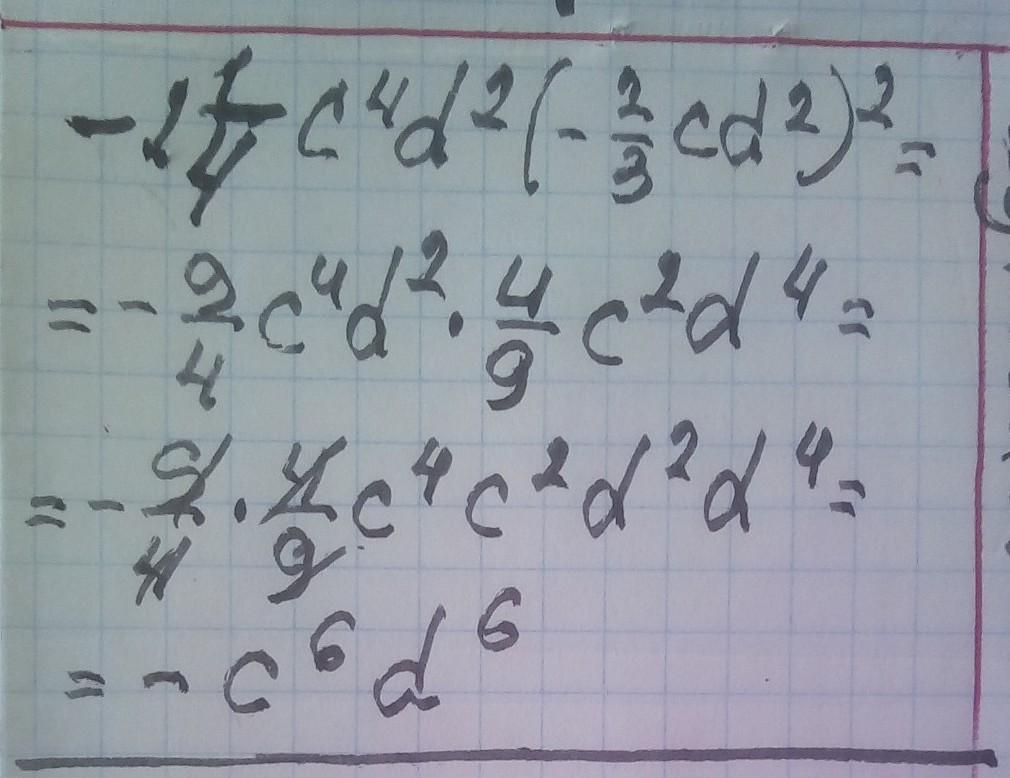 -2 1/4 c⁴d²(-2/3 cd²)²=
=-9/4 c⁴d²·4/9 c²d⁴=
=-9/4·4/9 c⁴c²d²d⁴=
=-c⁶d⁶